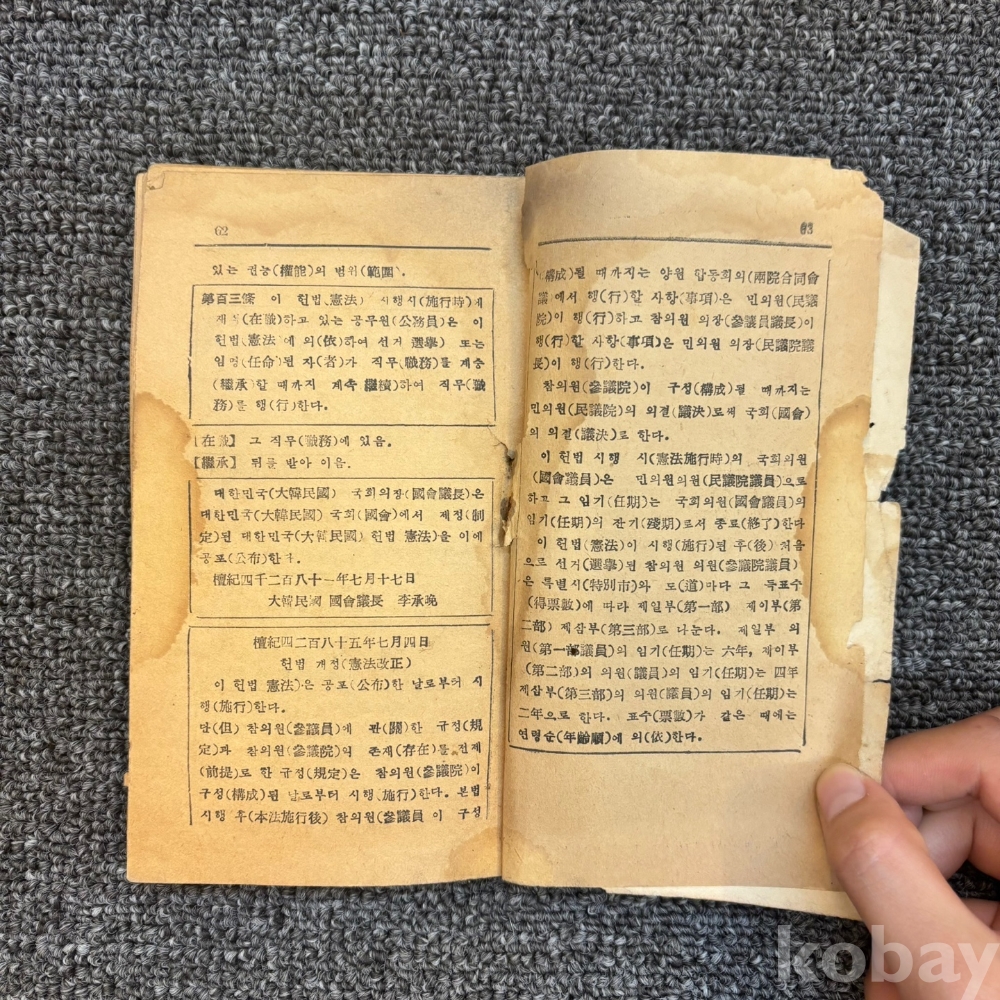 62
있는 권능(權能)의 범위(範圍).
第百三條 이 헌법(憲法) 시행시(施行時)에
재직(在職)하고 있는 공무원(公務員)은 이
헌법(憲法)에 의(依)하여 선거 選擧) 또는
임명(任命)된 자(者)가 직무(職務)를 계승
(繼承)할 때까지 계속 繼續)하여 직무(職
務)를 행(行)한다.
【在職】 그 직무(職務)에 있음.
【繼承】 뒤를 받아 이음.
대한민국(大韓民國) 국회의장(國會議長)은
대한민국(大韓民國) 국회(國會)에서 제정(制
定)된 대한민국(大韓民國) 헌법 憲法)을 이에
공포(公布)한다.
檀紀四千二百八十一年七月十七日
大韓民國 國會議長 李承晩
檀紀四二百八十五年七月四日
헌법 개정(憲法改正)
이 헌법 憲法)은 공포(公布)한 날로부터 시
행(施行)한다.
단(但) 참의원(參議員)에 관(關)한 규정(規
定)과 참의원(參議院)의 존재(存在)를 전제
(前提)로 한 규정(規定)은 참의원(參議院)이
구성(構成)된 날로부터 시행(施行)한다. 본법
시행 후(本法施行後) 참의원(參議員 이 구성
63
(構成)될 때까지는 양원 합동회의(兩院合同會
議)에서 행(行)할 사항(事項)은 민의원(民議
院)이 행(行)하고 참의원 의장(參議員議長)이
행(行)할 사항(事項)은 민의원 의장(民議院議
長)이 행(行)한다.
참의원(參議院)이 구성(構成)될 때까지는
민의원(民議院)의 의결(議決)로써 국회(國會)
의 의결(議決)로 한다.
이 헌법 시행 시(憲法施行時)의 국회의원
(國會議員)은 민의원의원(民議院議員)으로
하고 그 임기(任期)는 국회의원(國會議員)의
임기(任期)의 잔기(殘期)로서 종료(終了)한다
이 헌법(憲法)이 시행(施行)된 후(後) 처음
으로 선거(選擧)된 참의원 의원(參議院議員)
은 특별시(特別市)와 도(道)마다 그 득표수
(得票數)에 따라 제일부(第一部) 제이부(第
二部) 제삼부(第三部)로 나눈다. 제일부 의
원(第一部議員)의 임기(任期)는 六年, 제이부
(第二部)의 의원(議員)의 임기(任期)는 四年
제삼부(第三部)의 의원(議員)의 임기(任期)는
二年으로 한다. 표수(票數)가 같은 때에는
연령순(年齡順)에 의(依)한다.
kobay